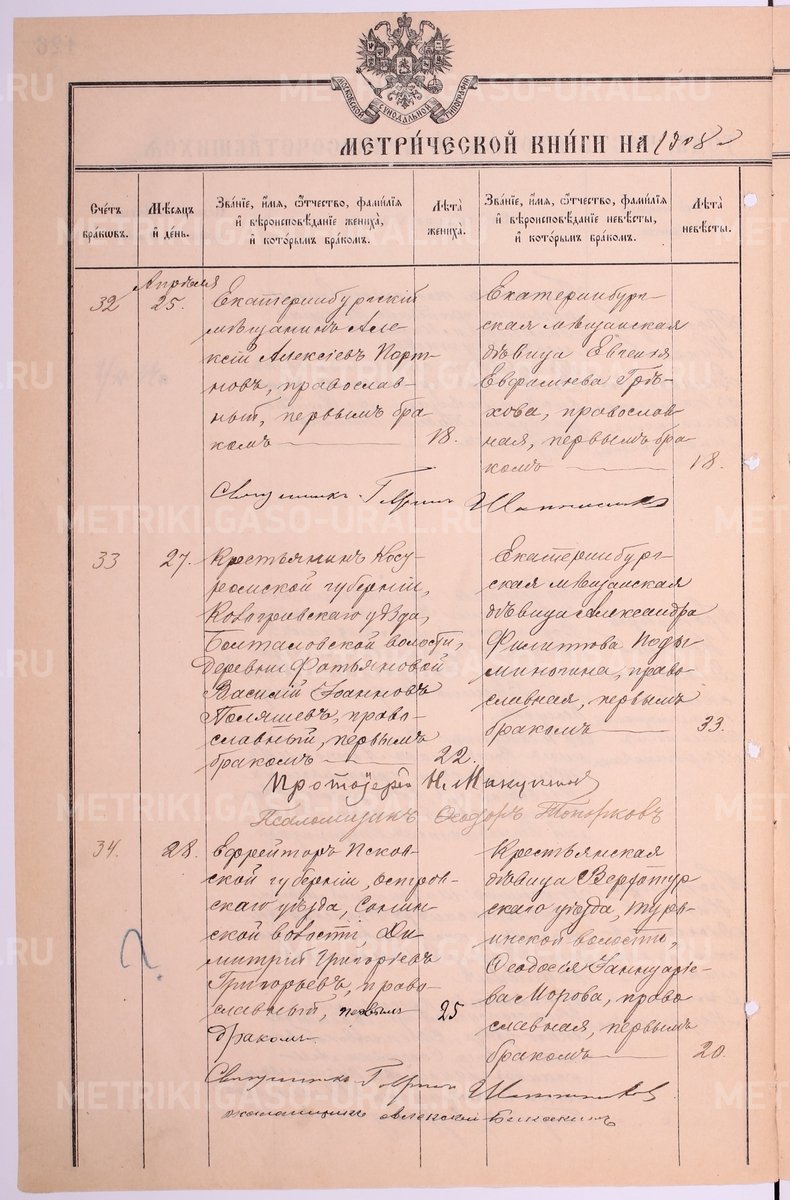 МОСКОВСКОЙ СѴНОДАЛЬНОЙ ТИПОГРАФІИ
МЕТРИ́ЧЕСКОЙ КНИ́ГИ НА 1908
Сче́тъ бра́кѡвъ.
Мѣ́сѧцъ и҆ де́нь.
Зва́нїе, и҆́мѧ, ѻ҆́тчество, фами́лїѧ и҆ вѣроисповѣ́данїе жениха̀, и҆ кото́рымъ бра́комъ.
Лѣ́та жениха̀.
Зва́нїе, и҆́мѧ, ѻ҆́тчество, фами́лїѧ и҆ вѣроисповѣ́данїе невѣ́сты, и҆ кото́рымъ бра́комъ.
Лѣ́та невѣ́сты.
32
Апрѣля
25.
Екатеринбургскій
мѣщанинъ Але-
ксій Алексіевъ Порт-
новъ, православ-
ный, первымъ бра-
комъ
18.
Екатеринбург-
ская мѣщанская
дѣвица Евгенія
Евфиміева Грѣ-
хова, православ-
ная, первымъ бра-
комъ
18.
Священникъ Гавріилъ
33
27.
Крестьянинъ Кост-
ромской губерніи,
Кологривскаго уѣзда,
волости,
деревни Фатьяновой
Василій Іоанновъ
Поляшевъ, право-
славный, первымъ
бракомъ
22.
Екатеринбург-
ская мѣщанская
дѣвица Александра
Филиппова Поды-
миногина, право-
славная, первымъ
бракомъ
33.
Протоіерей Н. Макушинъ
Псаломщикъ Ѳеодоръ Топорковъ
34.
28.
Ефрейторъ Псков-
ской губерніи, Остров-
скаго уѣзда,
ской волости, Ди-
митрій Григоріевъ
Григорьевъ, право-
славный, первымъ
бракомъ
25
Крестьянская
дѣвица Верхотур-
скаго уѣзда, Турь-
инской волости,
Ѳеодосія Іаннуаріе-
ва Морова, право-
славная, первымъ
бракомъ
20.
Священникъ Гавріилъ
псаломщикъ Алексій
METRIKI.GASO-URAL.RU